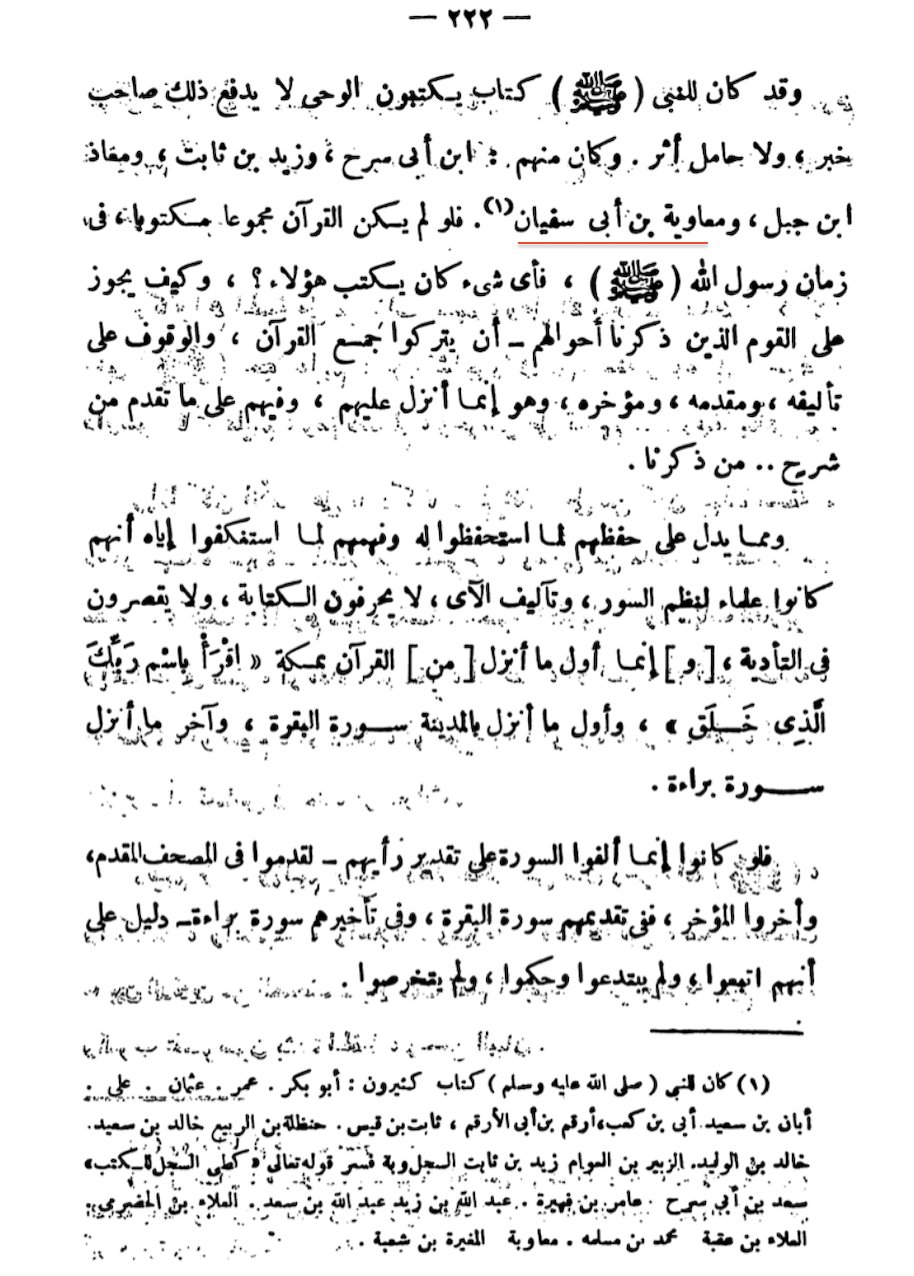 — ٢٢٢ —
وقد كان للنبى (ﷺ) كتاب يكتبون الوحى لا يدفع ذلك صاحب
خبر ، ولا حامل أثر . وكان منهم : ابن أبى سرح ، وزيد بن ثابت ، ومعاذ
ابن جبل ، ومعاوية بن أبى سفيان(١) . فلو لم يكن القرآن مجموعا مكتوبا ، فى
زمان رسول الله (ﷺ) ، فأى شىء كان يكتب هؤلاء ؟ ، وكيف يجوز
على القوم الذين ذكرنا أحوالهم – أن يتركوا جمع القرآن ، والوقوف على
تأليفه ، ومقدمه ، ومؤخره ، وهو إنما أنزل عليهم ، وفيهم على ما تقدم من
شريح .. من ذكرنا .
ومما يدل على حفظهم لما استحفظوا له وفهمهم لما استفكفوا إياه أنهم
كانوا علماء لنظم السور ، وتآليف الآى ، لا يحرفون الكتابة ، ولا يقصرون
فى التأدية ، [ و ] إنما أول ما أنزل [ من ] القرآن بمكة « اقْرَأْ بِاسْمِ رَبِّكَ
الَّذِى خَلَقَ » ، وأول ما أنزل بالمدينة سورة البقرة ، وآخر ما أنزل
سورة براءة .
فلو كانوا إنما ألفوا السورة على تقدير رأيهم – لقدموا فى المصحف المقدم،
وأخروا المؤخر ، ففى تقديمهم سورة البقرة ، وفى تأخيرهم سورة براءة – دليل على
أنهم اتبعوا ، ولم يبتدعوا وحكموا ، ولم يتخرصوا .
(١) كان للنبى ( صلى الله عليه وسلم ) كتاب كثيرون : أبو بكر . عمر . عثمان . على .
أبان بن سعيد أبى بن كعب، أرقم بن أبى الأرقم ، ثابت بن قيس . حنظلة بن الربيع خالد بن سعيد.
خالد بن الوليد. الزبير بن العوام زيد بن ثابت السجل وبه فسر قوله تعالى « كطى السجل للكتب »
سعد بن أبى سرح . عامر بن فهيرة . عبد الله بن زيد عبد الله بن سعد . العلاء بن الحضرمى .
العلاء بن عقبة محمد بن مسلمه . معاوية المغيرة بن شعبة .